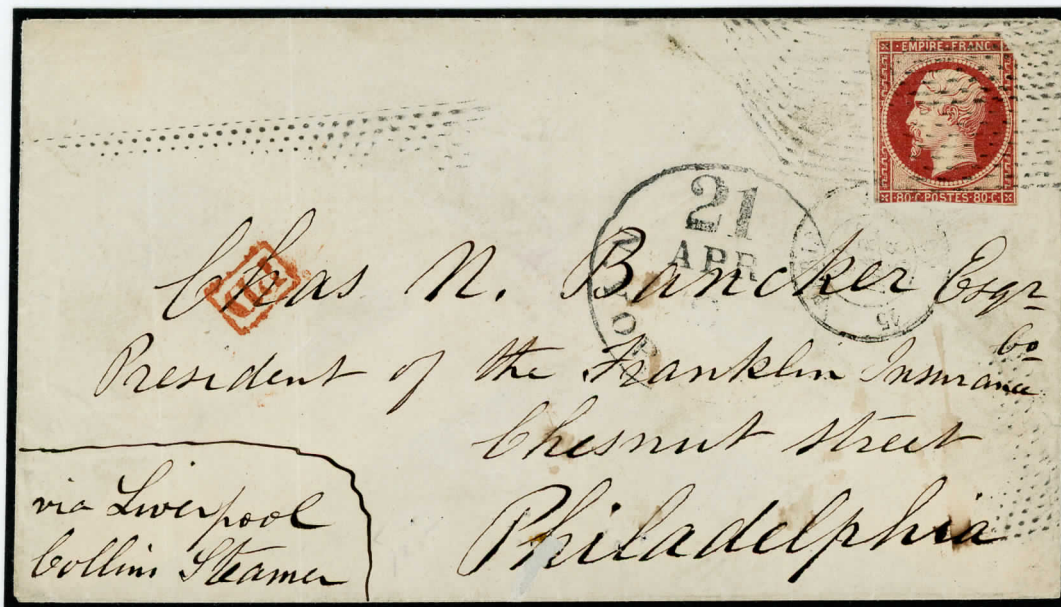 EMPIRE FRANC
80·C·POSTES·80·C
21
APR
BOSTON
Chas N. Bancker Esqr
President of the Franklin Insurance Co
Chesnut Street
Philadelphia
via Liverpool
Collins Steamer